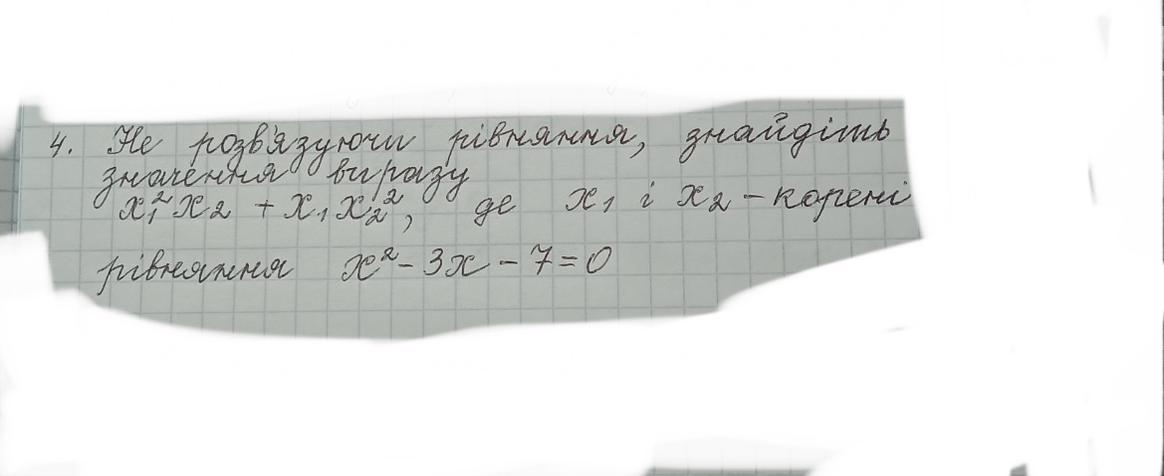 4. Не розв'язуючи рівняння, знайдіть
значення виразу
x₁²x₂ + x₁x₂², де x₁ і x₂ - корені
рівняння x² - 3x - 7 = 0